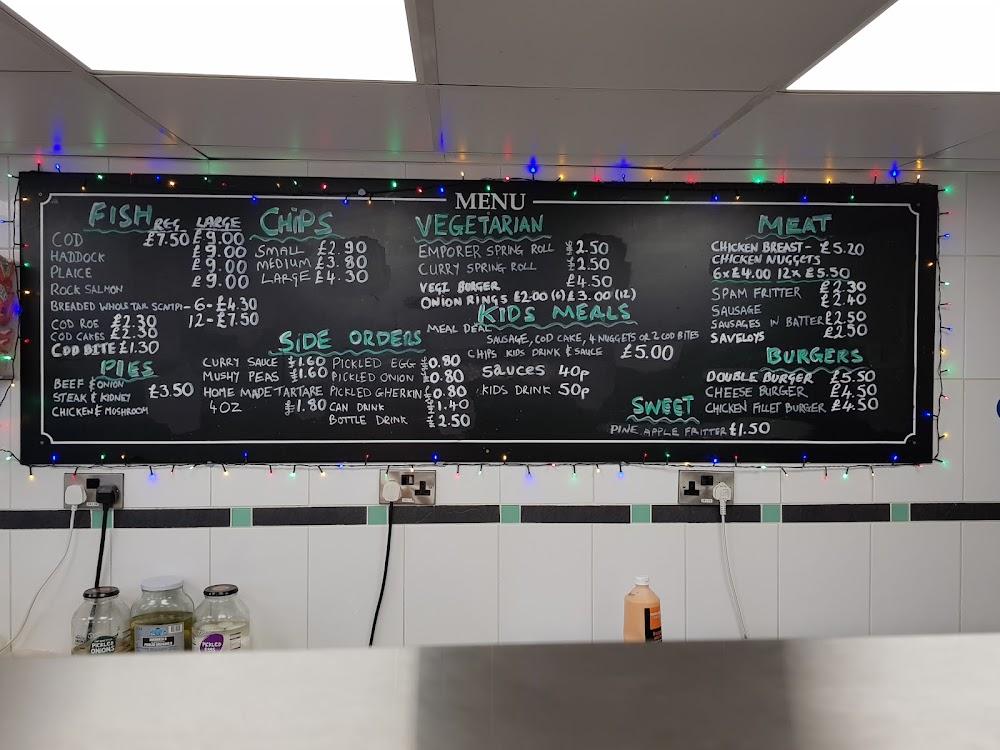 MENU
FISH REG LARGE
COD £7.50 £9.00
HADDOCK £9.00
PLAICE £9.00
ROCK SALMON £9.00
BREADED WHOLE TAIL SCAMPI - 6 - £4.30
12 - £7.50
COD ROE £2.30
COD CAKES £2.30
COD BITE £1.30
PIES
BEEF & ONION
STEAK & KIDNEY £3.50
CHICKEN & MOSHROOM
CHIPS
SMALL £2.90
MEDIUM £3.80
LARGE £4.30
SIDE ORDERS
CURRY SAUCE £1.60
MUSHY PEAS £1.60
HOME MADE TARTARE
4OZ £1.80
PICKLED EGG £0.80
PICKLED ONION £0.80
PICKLED GHERKIN £0.80
CAN DRINK £1.40
BOTTLE DRINK £2.50
VEGETARIAN
EMPORER SPRING ROLL £2.50
CURRY SPRING ROLL £2.50
VEGI BURGER £4.50
ONION RINGS £2.00 (6) £3.00 (12)
KIDS MEALS
MEAL DEAL
SAUSAGE, COD CAKE, 4 NUGGETS OR 2 COD BITES
CHIPS KIDS DRINK & SAUCE £5.00
SAUCES 40p
KIDS DRINK 50p
SWEET
PINE APPLE FRITTER £1.50
MEAT
CHICKEN BREAST - £5.20
CHICKEN NUGGETS
6x£4.00 12x£5.50
SPAM FRITTER £2.30
SAUSAGE £2.40
SAUSAGES IN BATTER £2.50
SAVELOYS £2.50
BURGERS
DOUBLE BURGER £5.50
CHEESE BURGER £4.50
CHICKEN FILLET BURGER £4.50
PICKLED
ONIONS
PICKLED
EGGS